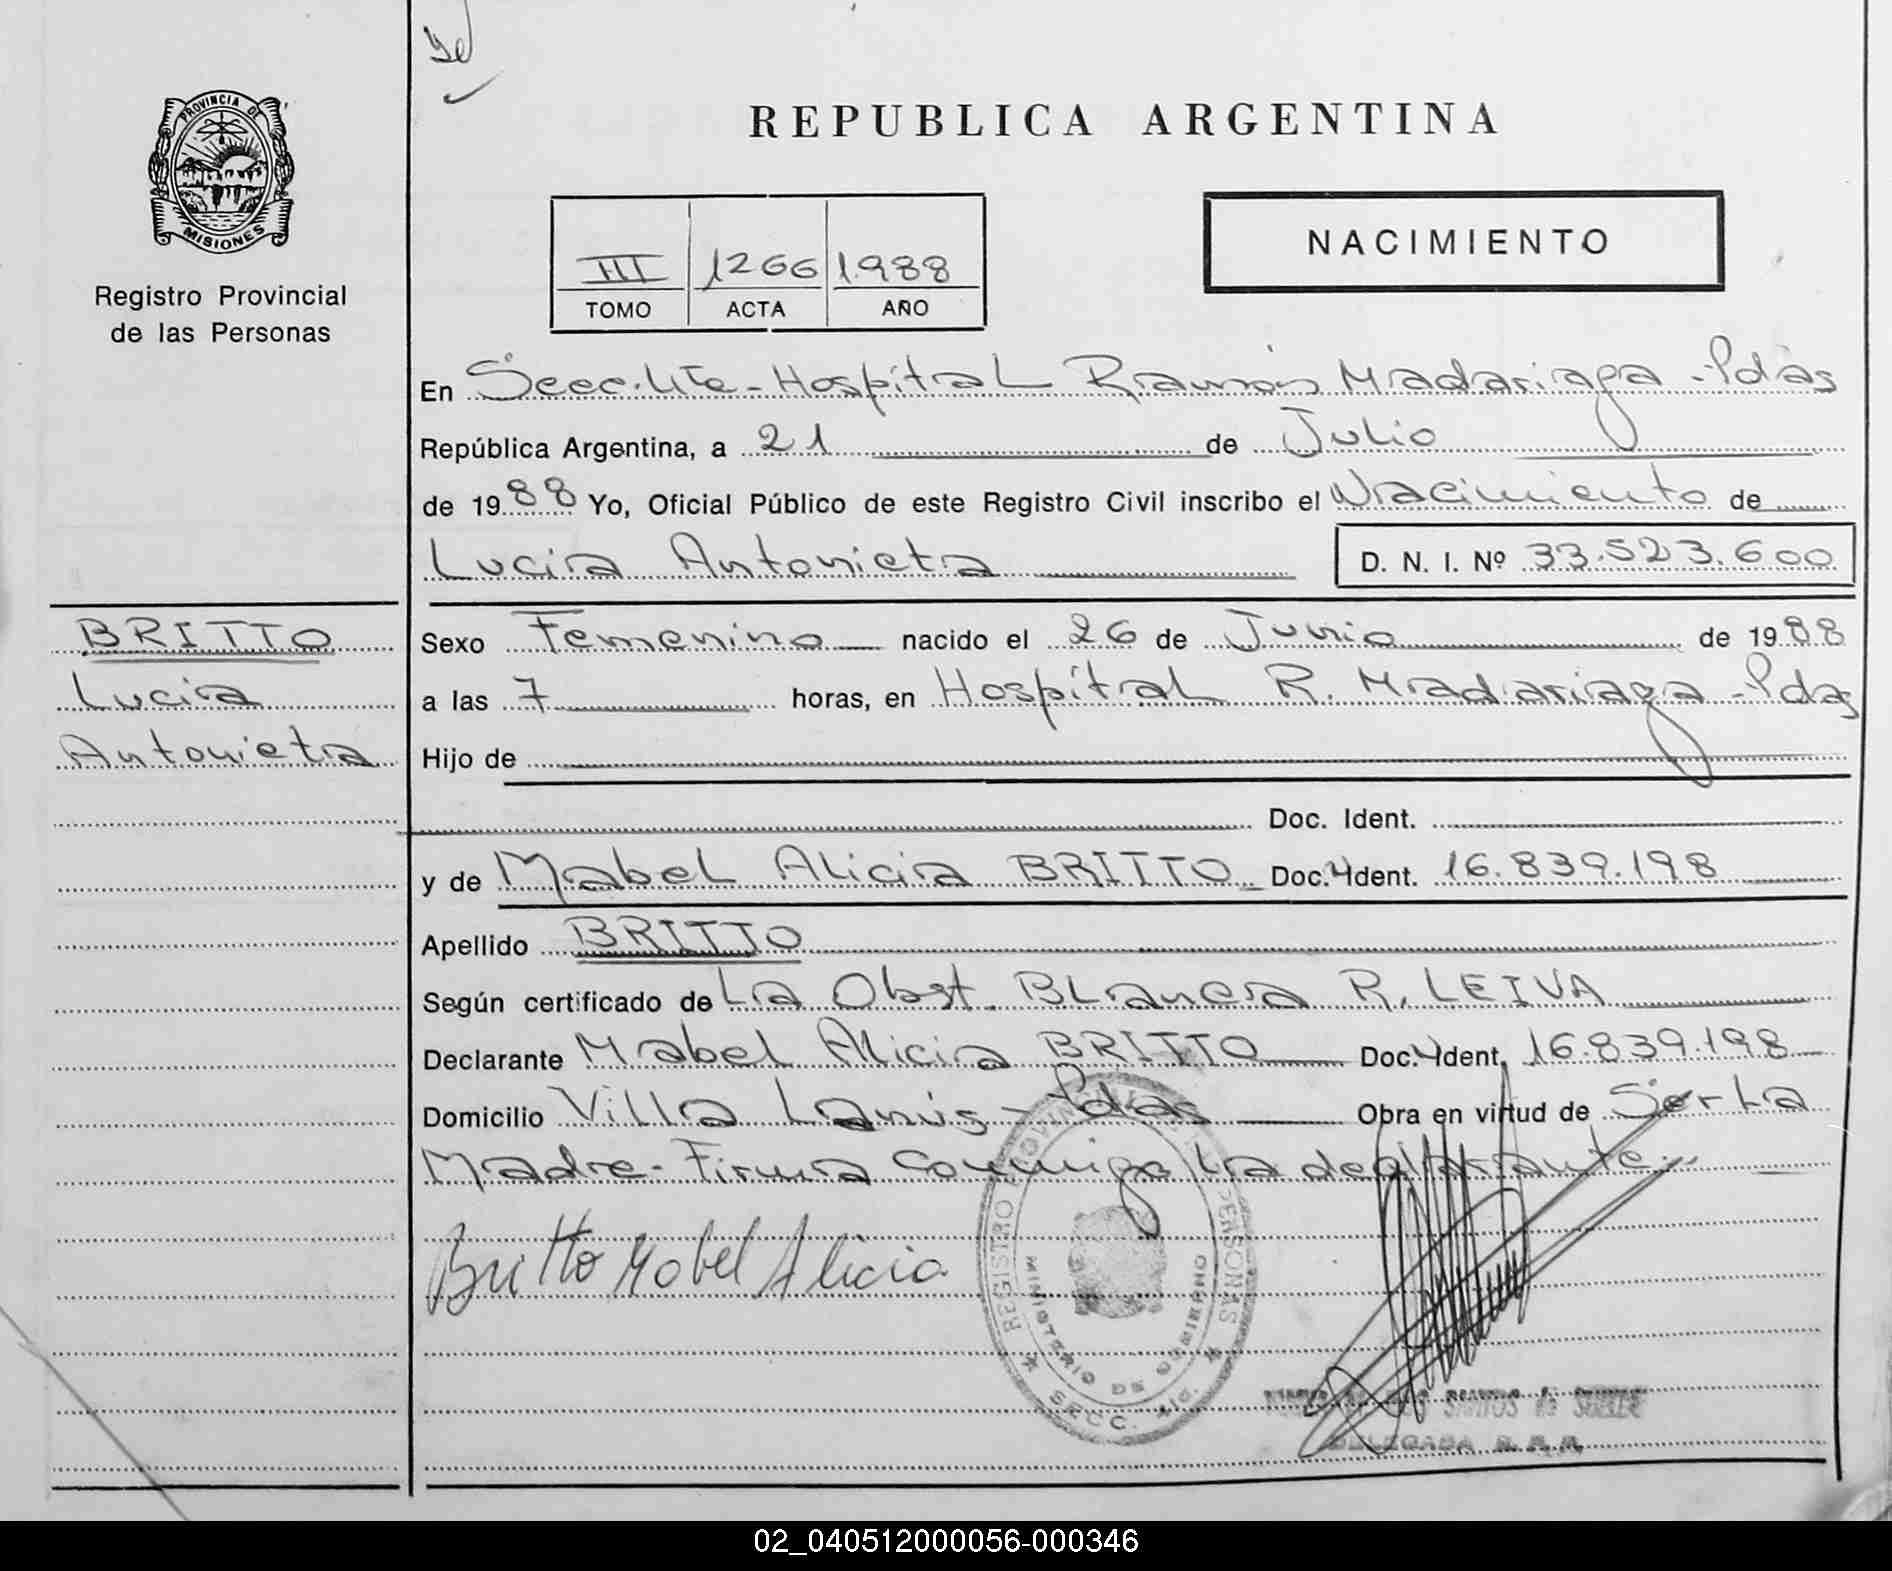 PROVINCIA DE
MISIONES
Registro Provincial
de las Personas
REPUBLICA ARGENTINA
NACIMIENTO
III 1266 1988
TOMO ACTA AÑO
En Secc. Hospital Ramón Madariaga - Pdas
República Argentina, a 21 de Julio
de 1988 Yo, Oficial Público de este Registro Civil inscribo el Nacimiento de
Lucia Antonieta D. N. I. Nº 33.523.600
BRITTO
Lucia
Antonieta
Sexo Femenino nacido el 26 de Junio de 1988
a las 7 horas, en Hospital R. Madariaga - Pdas
Hijo de
Doc. Ident.
y de Mabel Alicia BRITTO Doc. Ident. 16.839.198
Apellido BRITTO
Según certificado de La Obst. Blanca R. LEIVA
Declarante Mabel Alicia BRITTO Doc. Ident. 16.839.198
Domicilio Villa Lanús - Pdas Obra en virtud de Ser La
Madre - Firma Conmigo La declarante.
Britto Mabel Alicia
REGISTRO PROVINCIAL DE LAS PERSONAS
MINISTERIO DE GOBIERNO
SECC.
SANTOS de
DELEGADA R. P. P.
02_040512000056-000346